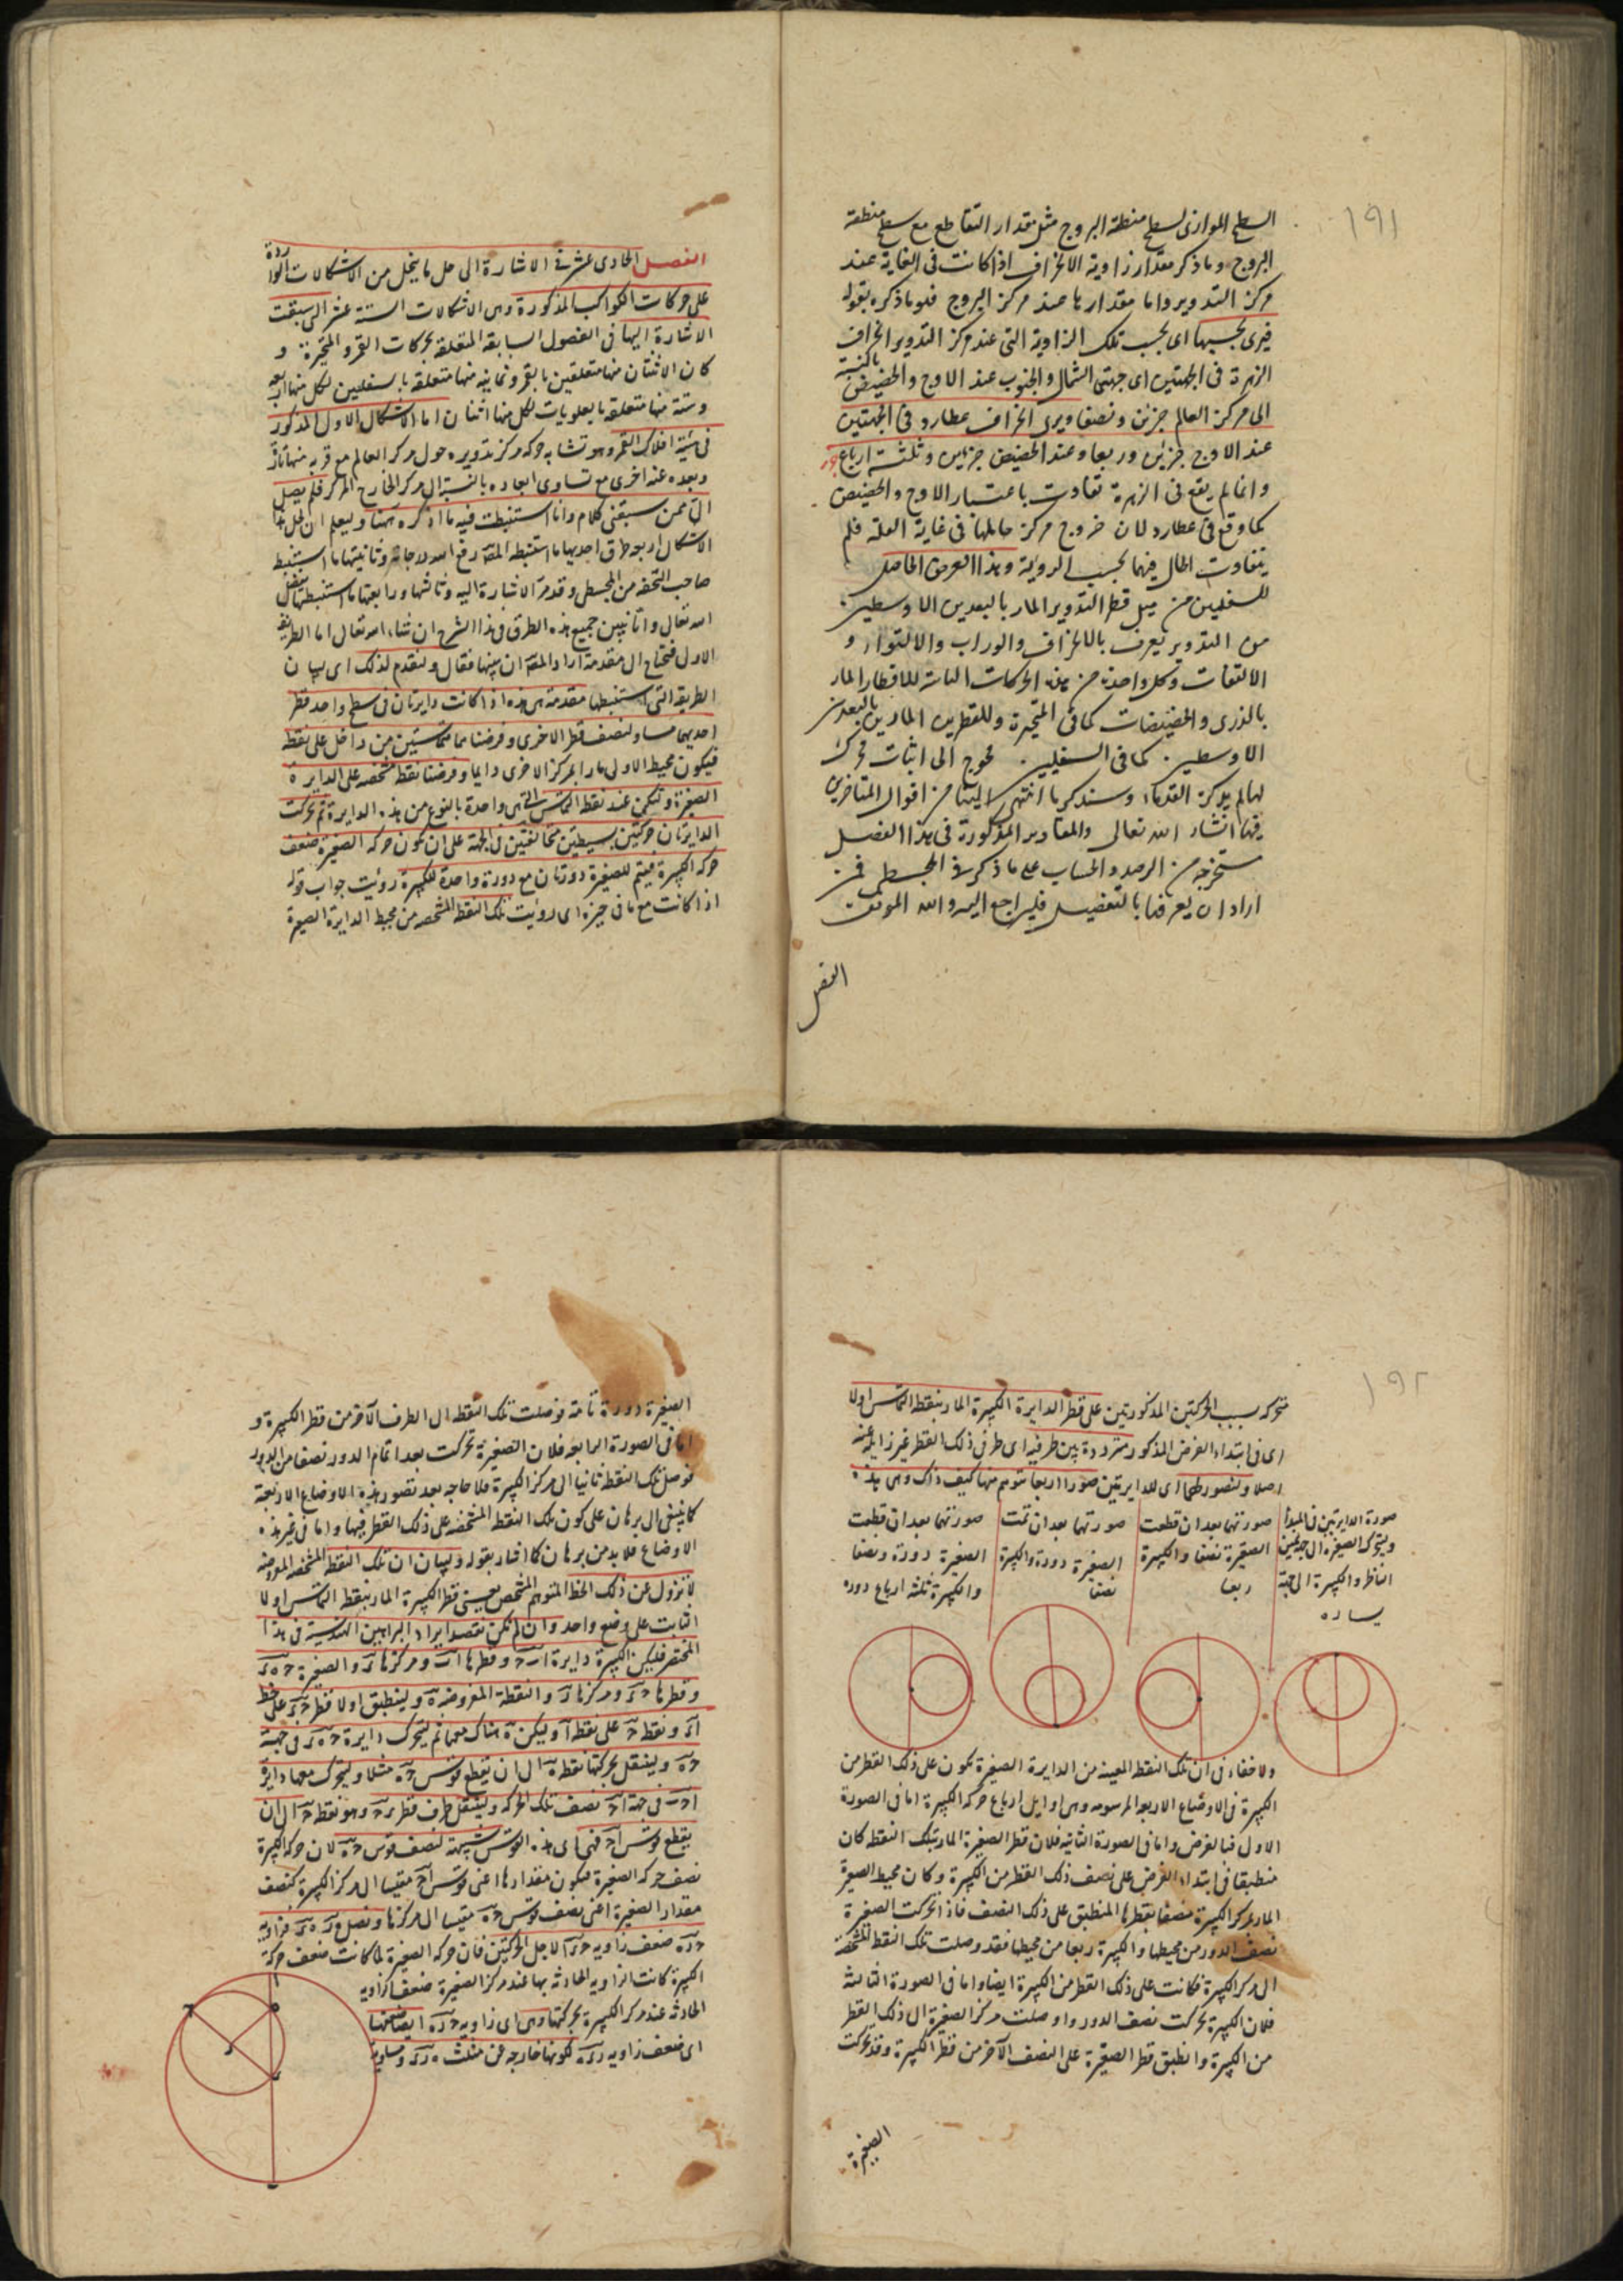 ١٩١
السطح الموازى لسطح منطقة البروج مثل مقدار التقاطع مع سطح منطقة
البروج وما ذكر مقدار زاوية الانحراف اذا كانت فى الغاية عند
مركز التدوير واما مقدارها عند مركز البروج فهو ما ذكره بقوله
فيرى بحسبها اى بحسب تلك الزاوية التى عند مركز التدوير انحراف
الزهرة فى الجهتين اى جهتى الشمال والجنوب عند الاوج والحضيض بالنسبة
الى مركز العالم جزئين ونصفا ويرى انحراف عطارد فى الجهتين
عند الاوج جزئين وربعا وعند الحضيض جزئين وثلثة ارباع جزء
وانما لم يقع فى الزهرة تفاوت باعتبار الاوج والحضيض
كما وقع فى عطارد لان خروج مركز حاملها فى غاية القلة فلم
يتفاوت الحال فيهما بحسب الروية وهذا العرض الحاصل
للسفليين من ميل قطر التدوير المار بالبعدين الاوسطين
من التدوير يعرف بالانحراف والوراب والالتواء و
الالتفات وكل واحدة من هذه الحركات الثابتة للاقطار المارة
بالذرى والحضيضات كما فى المتحيرة وللقطرين المارين بالبعدين
الاوسطين كما فى السفليين محوج الى اثبات محرك
لها لم يذكره القدماء وسنذكر ما انتهى الينا من اقوال المتاخرين
فيها انشاء الله تعالى والمقادير المذكورة فى هذا الفصل
مستخرجة من الرصد والحساب على ما ذكر فى المجسطى فمن
اراد ان يعرفها بالتفصيل فليراجع اليه والله الموفق
الفصل
الفصل الحادى عشر فى الاشارة الى حل ما ينحل من الاشكالات الواردة
على حركات الكواكب المذكورة وهى الاشكالات الستة عشر التى سبقت
الاشارة اليها فى الفصول السابقة المتعلقة بحركات القمر والمتحيرة و
كان الاثنتان منها متعلقين بالقمر وثمانية منها متعلقة بالسفليين لكل منها اربعة
وستة منها متعلقة بالعلويات لكل منها اثنان اما الاشكال الاول المذكور
فى هيئة افلاك القمر وهو تشابه حركة مركز تدويره حول مركز العالم مع قربه منها تارة
وبعده عنه اخرى مع تساوى ابعاده بالنسبة الى مركز الخارج المركز فلم يصل
الى ممن سبقنى كلام وانا استنبطت فيه ما اذكره ههنا وليعلم ان لحل هذا
الاشكال اربعة طرق احديها ما استنبطه المص رفع الله درجاته وثانيتها ما استنبط
صاحب التحفة من المجسطى وقد مر الاشارة اليه وثالثها ورابعتها ما استنبطتهما بفضل
الله تعالى وانا نبين جميع هذه الطرق فى هذا الشرح ان شاء الله تعالى اما الطريقة
الاولى فتحتاج الى مقدمة اراد المص ان يبينها فقال ولنقدم لذلك اى لبيان
الطريقة التى استنبطها مقدمة هى هذه اذا كانت دايرتان فى سطح واحد قطر
احديهما مساو لنصف قطر الاخرى وفرضنا متماستين من داخل على نقطة
فيكون محيط الاولى مارا بمركز الاخرى دايما وفرضنا نقطة مشخصة على الدايرة
الصغيرة ولتكن عند نقطة التماس التى هى واحدة بالنوع من هذه الدايرة ثم تحركت
الدايرتان حركتين بسيطتين متخالفتين فى الجهة على ان تكون حركة الصغيرة ضعف
حركة الكبيرة فيتم للصغيرة دورتان مع دورة واحدة للكبيرة رؤيت جواب قوله
اذا كانت مع ما فى حيزه اى رؤيت تلك النقطة المشخصة من محيط الدايرة الصغيرة
١٩٢
متحركة بسبب الحركتين المذكورتين على قطر الدايرة الكبيرة المار بنقطة التماس اولا
اى فى ابتداء الفرض المذكور مترددة بين طرفيه اى طرفى ذلك القطر غير زايلة عنه
اصلا ولنصور لهما اى للدايرتين صورا اربعا نتوهم منها كيف ذلك وهى هذه
صورة الدايرتين فى المبدأ
وتتحرك الصغيرة الى جهة يمين
الناظر والكبيرة الى جهة
يساره
صورتهما بعد ان قطعت
الصغيرة نصفا والكبيرة
ربعا
صورتهما بعد ان تمت
الصغيرة دورة والكبيرة
نصفا
صورتهما بعد ان قطعت
الصغيرة دورة ونصفا
والكبيرة ثلثة ارباع دورة
ولا خفاء فى ان تلك النقطة المعينة من الدايرة الصغيرة تكون على ذلك القطر من
الكبيرة فى الاوضاع الاربعة المرسومة وهى اوايل ارباع حركة الكبيرة اما فى الصورة
الاولى فبالفرض واما فى الصورة الثانية فلان قطر الصغيرة المار بتلك النقطة كان
منطبقا فى ابتداء الفرض على نصف ذلك القطر من الكبيرة وكان محيط الصغيرة
المار بمركز الكبيرة منصفا بقطرها المنطبق على ذلك النصف فاذا تحركت الصغيرة
نصف الدور من محيطها والكبيرة ربعا من محيطها فقد وصلت تلك النقطة المشخصة
الى مركز الكبيرة فكانت على ذلك القطر من الكبيرة ايضا واما فى الصورة الثالثة
فلان الكبيرة تحركت نصف الدور واوصلت مركز الصغيرة الى ذلك القطر
من الكبيرة وانطبق قطر الصغيرة على النصف الآخر من قطر الكبيرة وقد تحركت
الصغيرة
الصغيرة دورة تامة فوصلت تلك النقطة الى الطرف الآخر من قطر الكبيرة و
اما فى الصورة الرابعة فلان الصغيرة تحركت بعد اتمام الدور نصفا من الدور
فوصل تلك النقطة ثانيا الى مركز الكبيرة فلا حاجة بعد تصور هذه الاوضاع الاربعة
كما ينبغى الى برهان على كون تلك النقطة المشخصة على ذلك القطر فيها واما فى غير هذه
الاوضاع فلا بد من برهان كما اشار بقوله ولبيان ان تلك النقطة المشخصة المفروضة
لا تزول عن ذلك الخط المتوهم المشخص يعنى قطر الكبيرة المار بنقطة التماس اولا
الثابت على وضع واحد وان لم تكن نقصد ايراد البراهين الهندسية فى هذا
المختصر فليكن الكبيرة دايرة ا ب ح وقطرها ا ب ومركزها د والصغيرة ح ه د
وقطرها ح د ومركزها ر والنقطة المفروضة ه ولينطبق اولا قطر ح د على خط
ا د ونقطة ح على نقطة ا وليكن ه هناك معهما ثم لتتحرك دايرة ح ه د فى جهة
ح ه ولينتقل بحركتها نقطة ه الى ان يقطع قوس ح ه مثلا ولتتحرك معها دايرة
ا ح ب فى جهة ا ح نصف تلك الحركة ولينتقل طرف قطر د ح وهو نقطة ح الى ان
يقطع قوس ا ح فهى اى هذه القوس شبيهة لنصف قوس ح ه لان حركة الكبيرة
نصف حركة الصغيرة فيكون مقدارها اعنى قوس ا ح مقيسا الى مركز الكبيرة كنصف
مقدار الصغيرة اعنى نصف قوس ح ه مقيسا الى مركزها ونصل ر ه د ه فزاوية
ح ر ه ضعف زاوية ح د ا لاجل الحركتين فان حركة الصغيرة لما كانت ضعف حركة
الكبيرة كانت الزاوية الحادثة بها عند مركز الصغيرة ضعف الزاوية
الحادثة عند مركز الكبيرة بحركتها وهى اى زاوية ح ر ه ايضا ضعفها
اى ضعف زاوية ر د ه لكونها خارجة عن مثلث ه ر د ومساوية